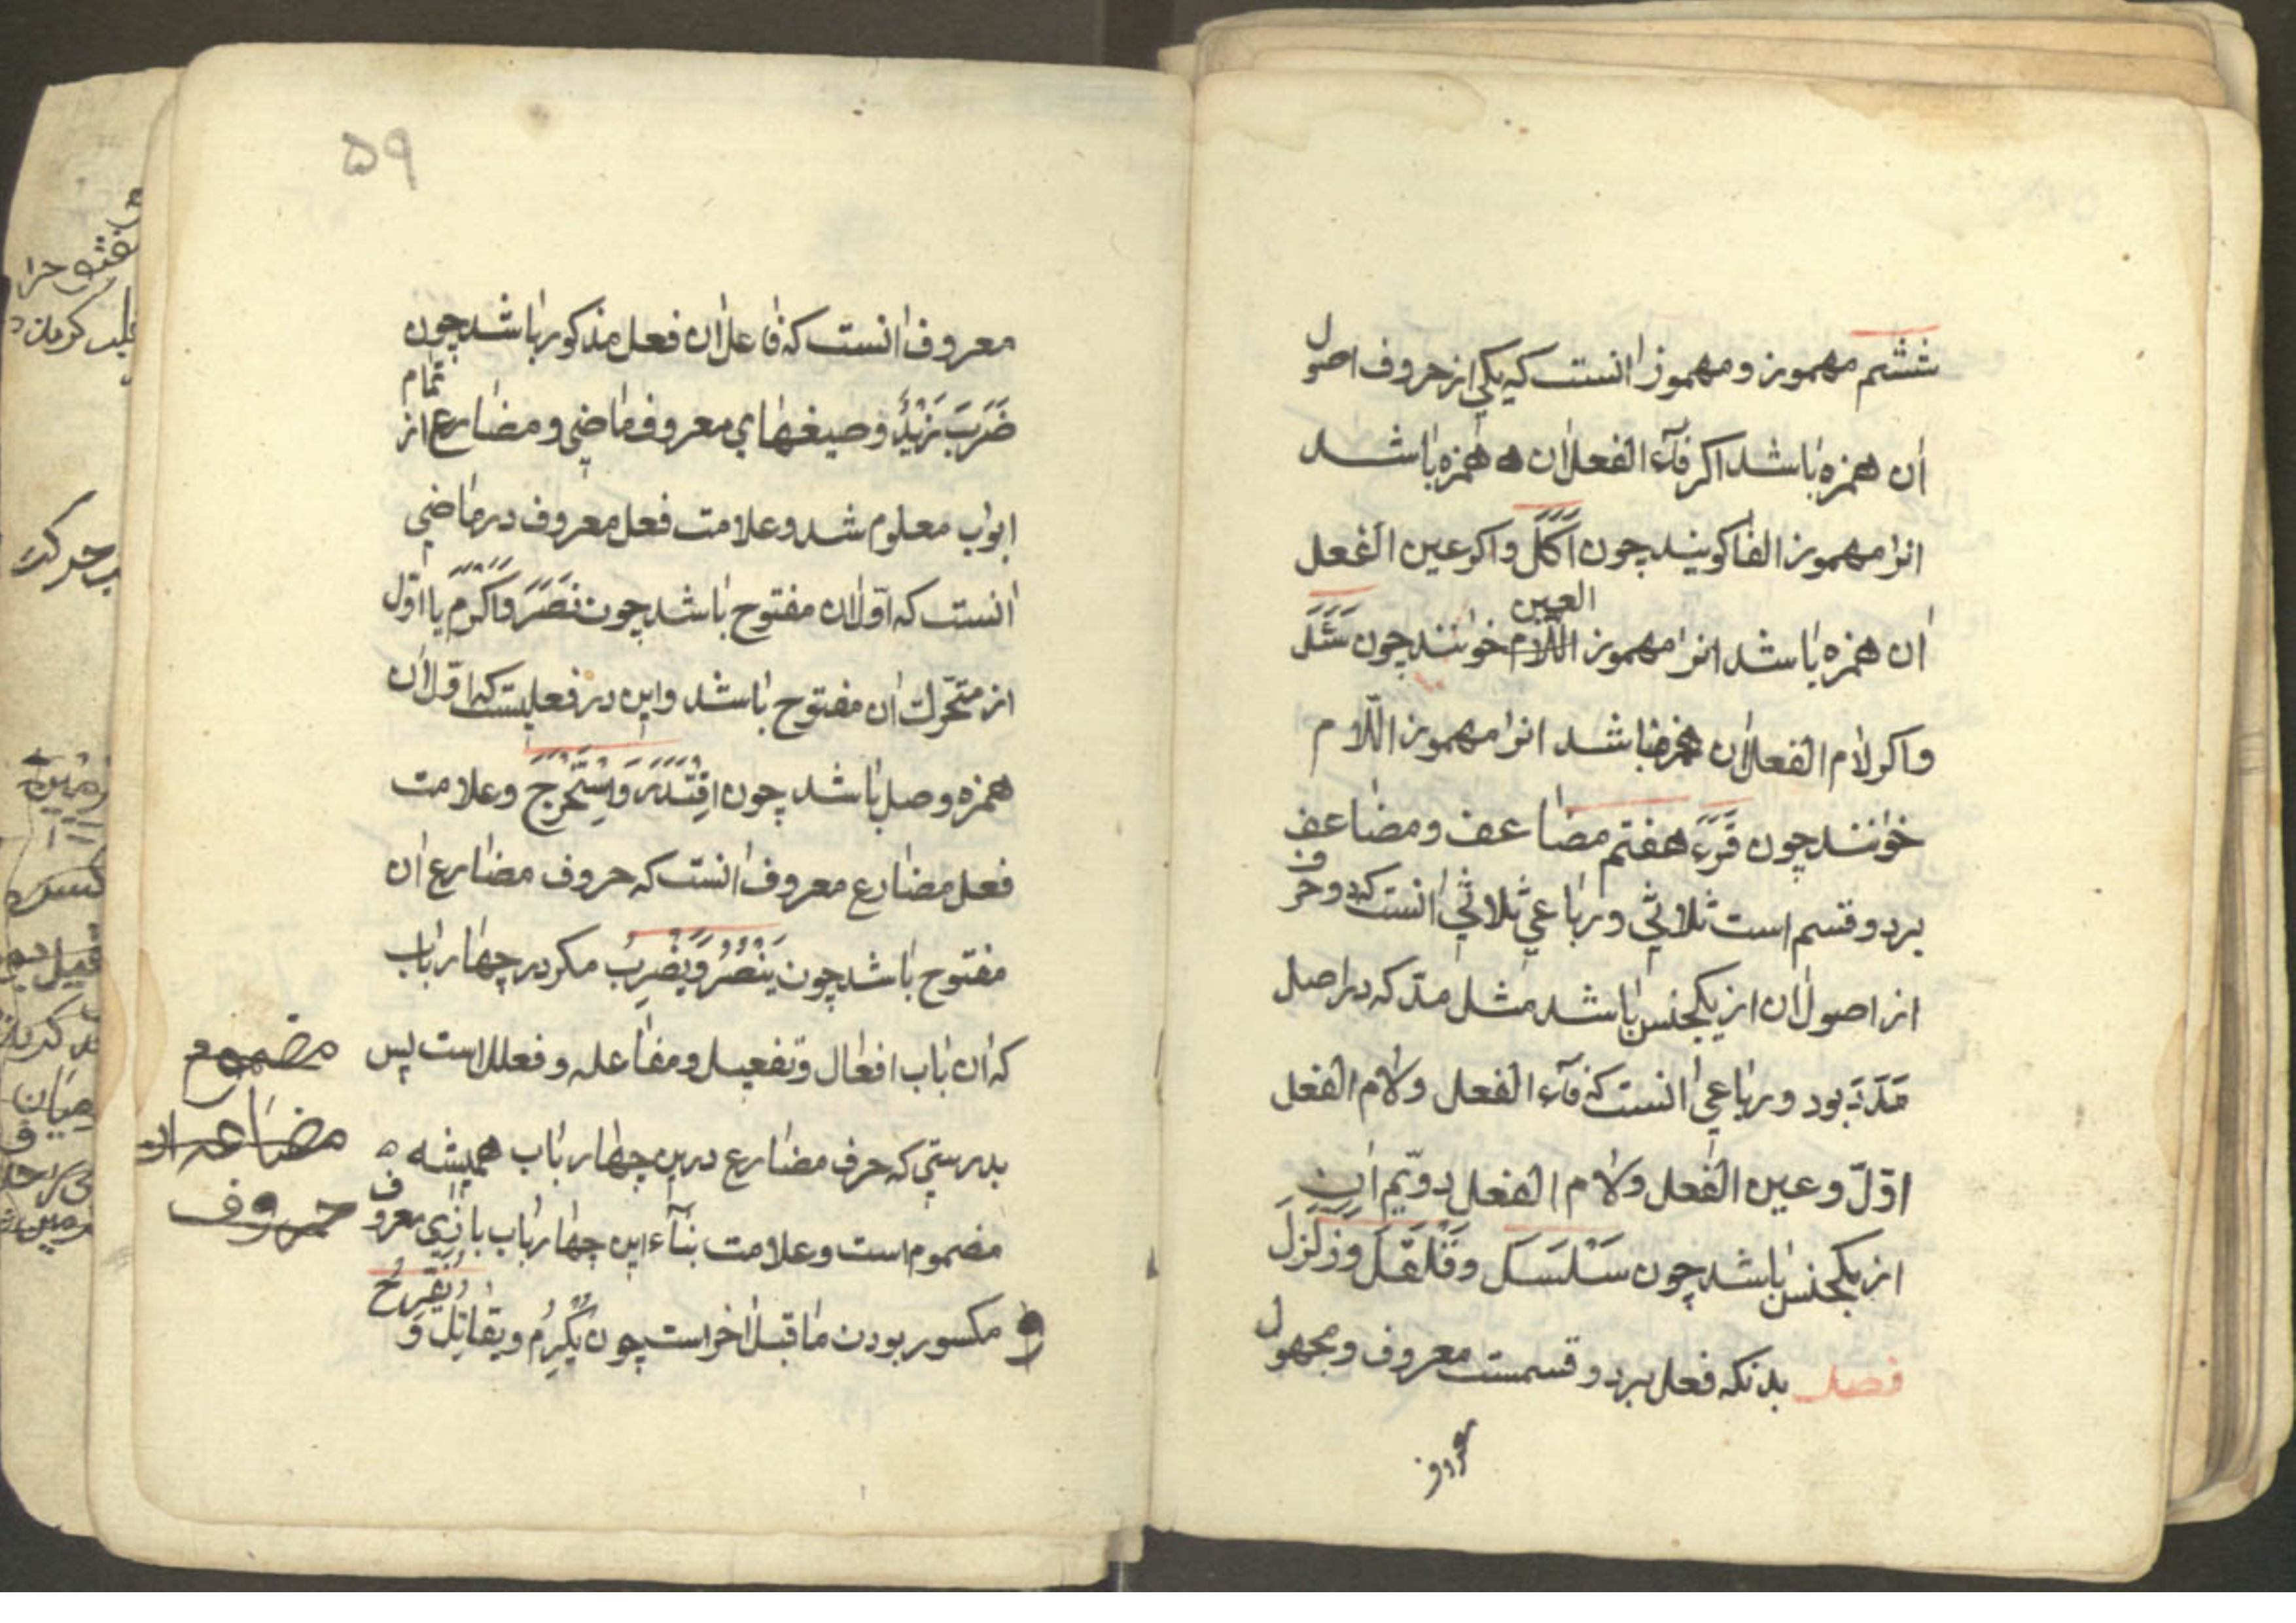 ششم مهموز و مهموز انست که یکی از حروف اصول
ان همزه باشد اکر فآء الفعل ان همزه باشد
انرا مهموز الفا کویند چون اَکَلَ واکر عین الفعل
ان همزه باشد انرا مهموز العین خوانند چون سَئَلَ
واکر لام الفعل ان همزه باشد انرا مهموز اللّام
خوانند چون قَرَءَ هفتم مضاعف و مضاعف
بر دو قسم است ثلاثی و رباعی ثلاثی انست که دو حرف
از اصول ان از یکجنس باشد مثل مدّ که در اصل
مَدَدَ بود و رباعی انست که فآء الفعل ولام الفعل
اوّل و عین الفعل ولام الفعل دویّم ان
از یکجنس باشد چون سَلْسَلَ وقَلْقَلَ وزَلْزَلَ
فصل بدنکه فعل بر دو قسمست معروف و مجهول
معروف
۵۹
معروف انست که فاعل ان فعل مذکور باشد چون
ضَرَبَ زَیْدٌ و صیغهای معروف ماضی و مضارع از تمام
ابواب معلوم شد و علامت فعل معروف در ماضی
انست که اوّل ان مفتوح باشد چون نَصَرَ وَاَکْرَمَ یا اوّل
از متحّرك ان مفتوح باشد واین در فعلیست که اوّل ان
همزه وصل باشد چون اِقْتَدَرَ وَاِسْتَخْرَجَ وعلامت
فعل مضارع معروف انست که حروف مضارع ان
مفتوح باشد چون یَنْصُرُ وَیَضْرِبُ مکر در چهار باب
که ان باب افعال وتفعیل ومفاعله و فعلل است پس
بدرستی که حرف مضارع درین چهار باب همیشه
مضموم است وعلامت بنآء این چهار باب بازی معروف
و مکسور بودن ماقبل اخر است چون یُکْرِمُ ویقاتِلُ وَ
یُفَرِّحُ
مضموم
حروف